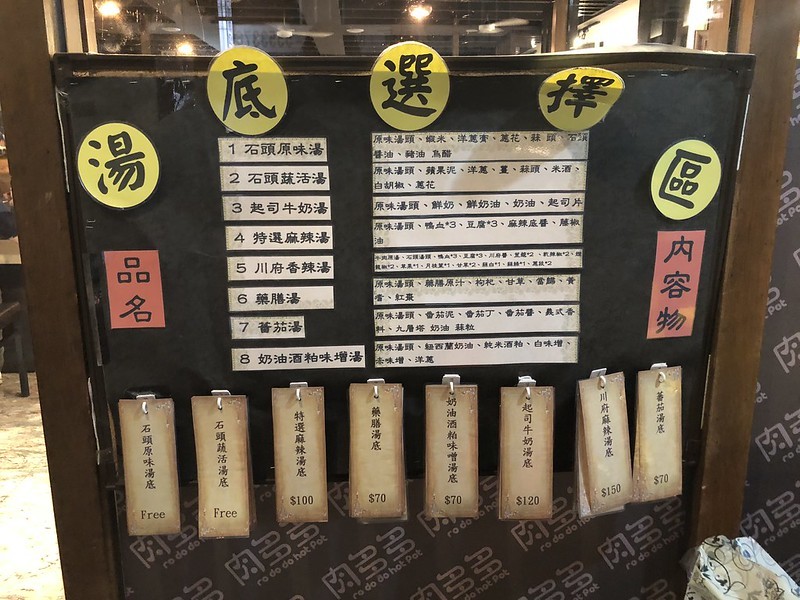 湯底選擇區
品名
內容物
1 石頭原味湯
原味湯頭、蝦米、洋蔥膏、蔥花、蒜頭、石頭
醬油、豬油 烏醋
2 石頭蔬活湯
原味湯頭、蘋果泥、洋蔥、薑、蒜頭、米酒、
白胡椒、蔥花
3 起司牛奶湯
原味湯頭、鮮奶、鮮奶油、奶油、起司片
4 特選麻辣湯
原味湯頭、鴨血*3、豆腐*3、麻辣底醬、藤椒
油
5 川府香辣湯
牛肉原湯、石頭湯頭、鴨血*3、豆腐*3、川府醬
6 藥膳湯
原味湯頭、藥膳原汁、枸杞、甘草、當歸、黃
耆、紅棗
7 蕃茄湯
原味湯頭、番茄泥、番茄丁、番茄醬、義式香
料、九層塔 奶油 蒜粒
8 奶油酒粕味增湯
原味湯頭、紐西蘭奶油、純米酒粕、白味增、
赤味增、洋蔥
石頭原味湯底
Free
石頭蔬活湯底
Free
特選麻辣湯底
$100
藥膳湯底
$70
奶油酒粕味噌湯底
$70
起司牛奶湯底
$120
川府麻辣湯底
$150
蕃茄湯底
$70
肉多多
ro do do hot pot